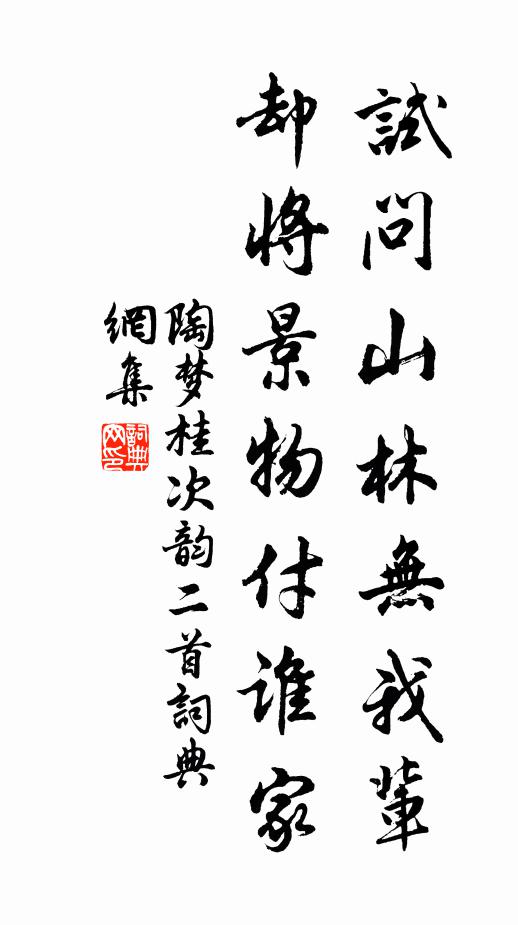 試問山林無我輩
却將景物付誰家
陶梦桂次韵二首詞典
網集
詞典網印